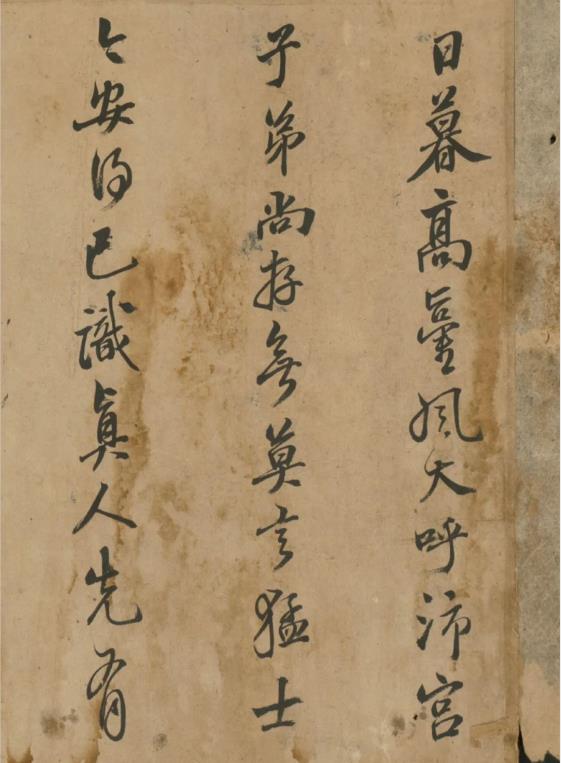 日暮髙臺風大呼沛宮
子弟尚存無莫言猛士
今安得已識眞人先有